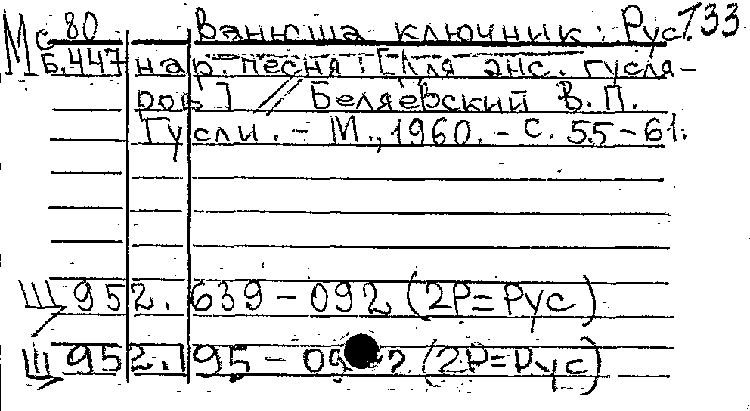 Мс 80 Ванюша ключник: Рус. 133
Б.447 нар. песня: [Для анс. гусля-
ров] // Беляевский В.П.
Гусли. - М., 1960. - С. 55-61.
Ш 952.639-092 (2Р=Рус)
Ш 952.195-092 (2Р=Рус)